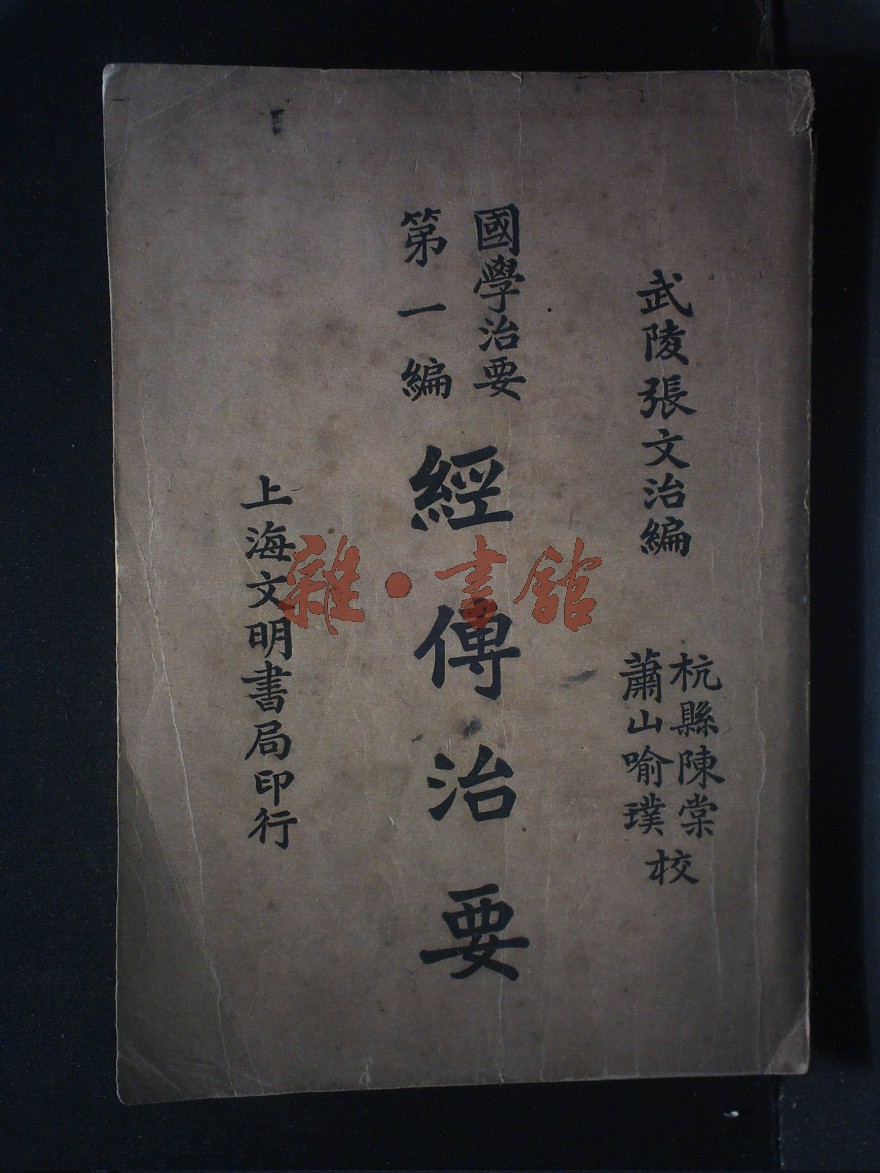 武陵張文治編
杭縣陳棠
蕭山喻璞
校
國學治要
第一編
經傳治要
上海文明書局印行
雜·書館